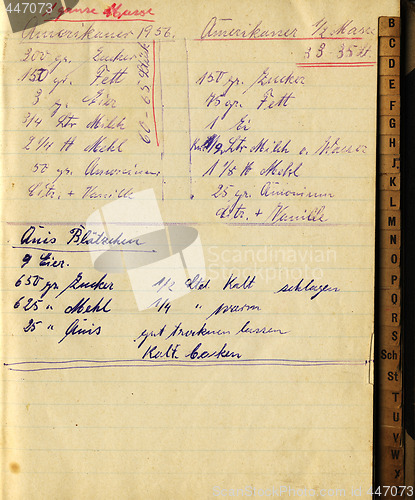 447073
ganze Masse
Amerikaner 1956.
300 gr. Zucker
150 gr. Fett
3 Eier
3/4 Ltr Milch
2 1/4 ℔ Mehl
50 gr. Amonium
Citr. + Vanille
60 65 Stück
Amerikaner 1/2 Masse
33 35 St.
150 gr. Zucker
75 gr. Fett
1 Ei
Ltr Milch o. Wasser
1 1/8 ℔ Mehl
25 gr. Amonium
Citr. + Vanille
Anis Blätschen
9 Eier.
650 gr. Zucker 1/2 Std Kalt schlagen
625 " Mehl 1/4 " warm
25 " Anis gut trocknen lassen
Kalt backen
B
C
D
E
F
G
H
J
K
L
M
N
O
P
Q
R
S
Sch
St
T
U
V
W
X
Scandinavian
StockPhoto
© kl447073